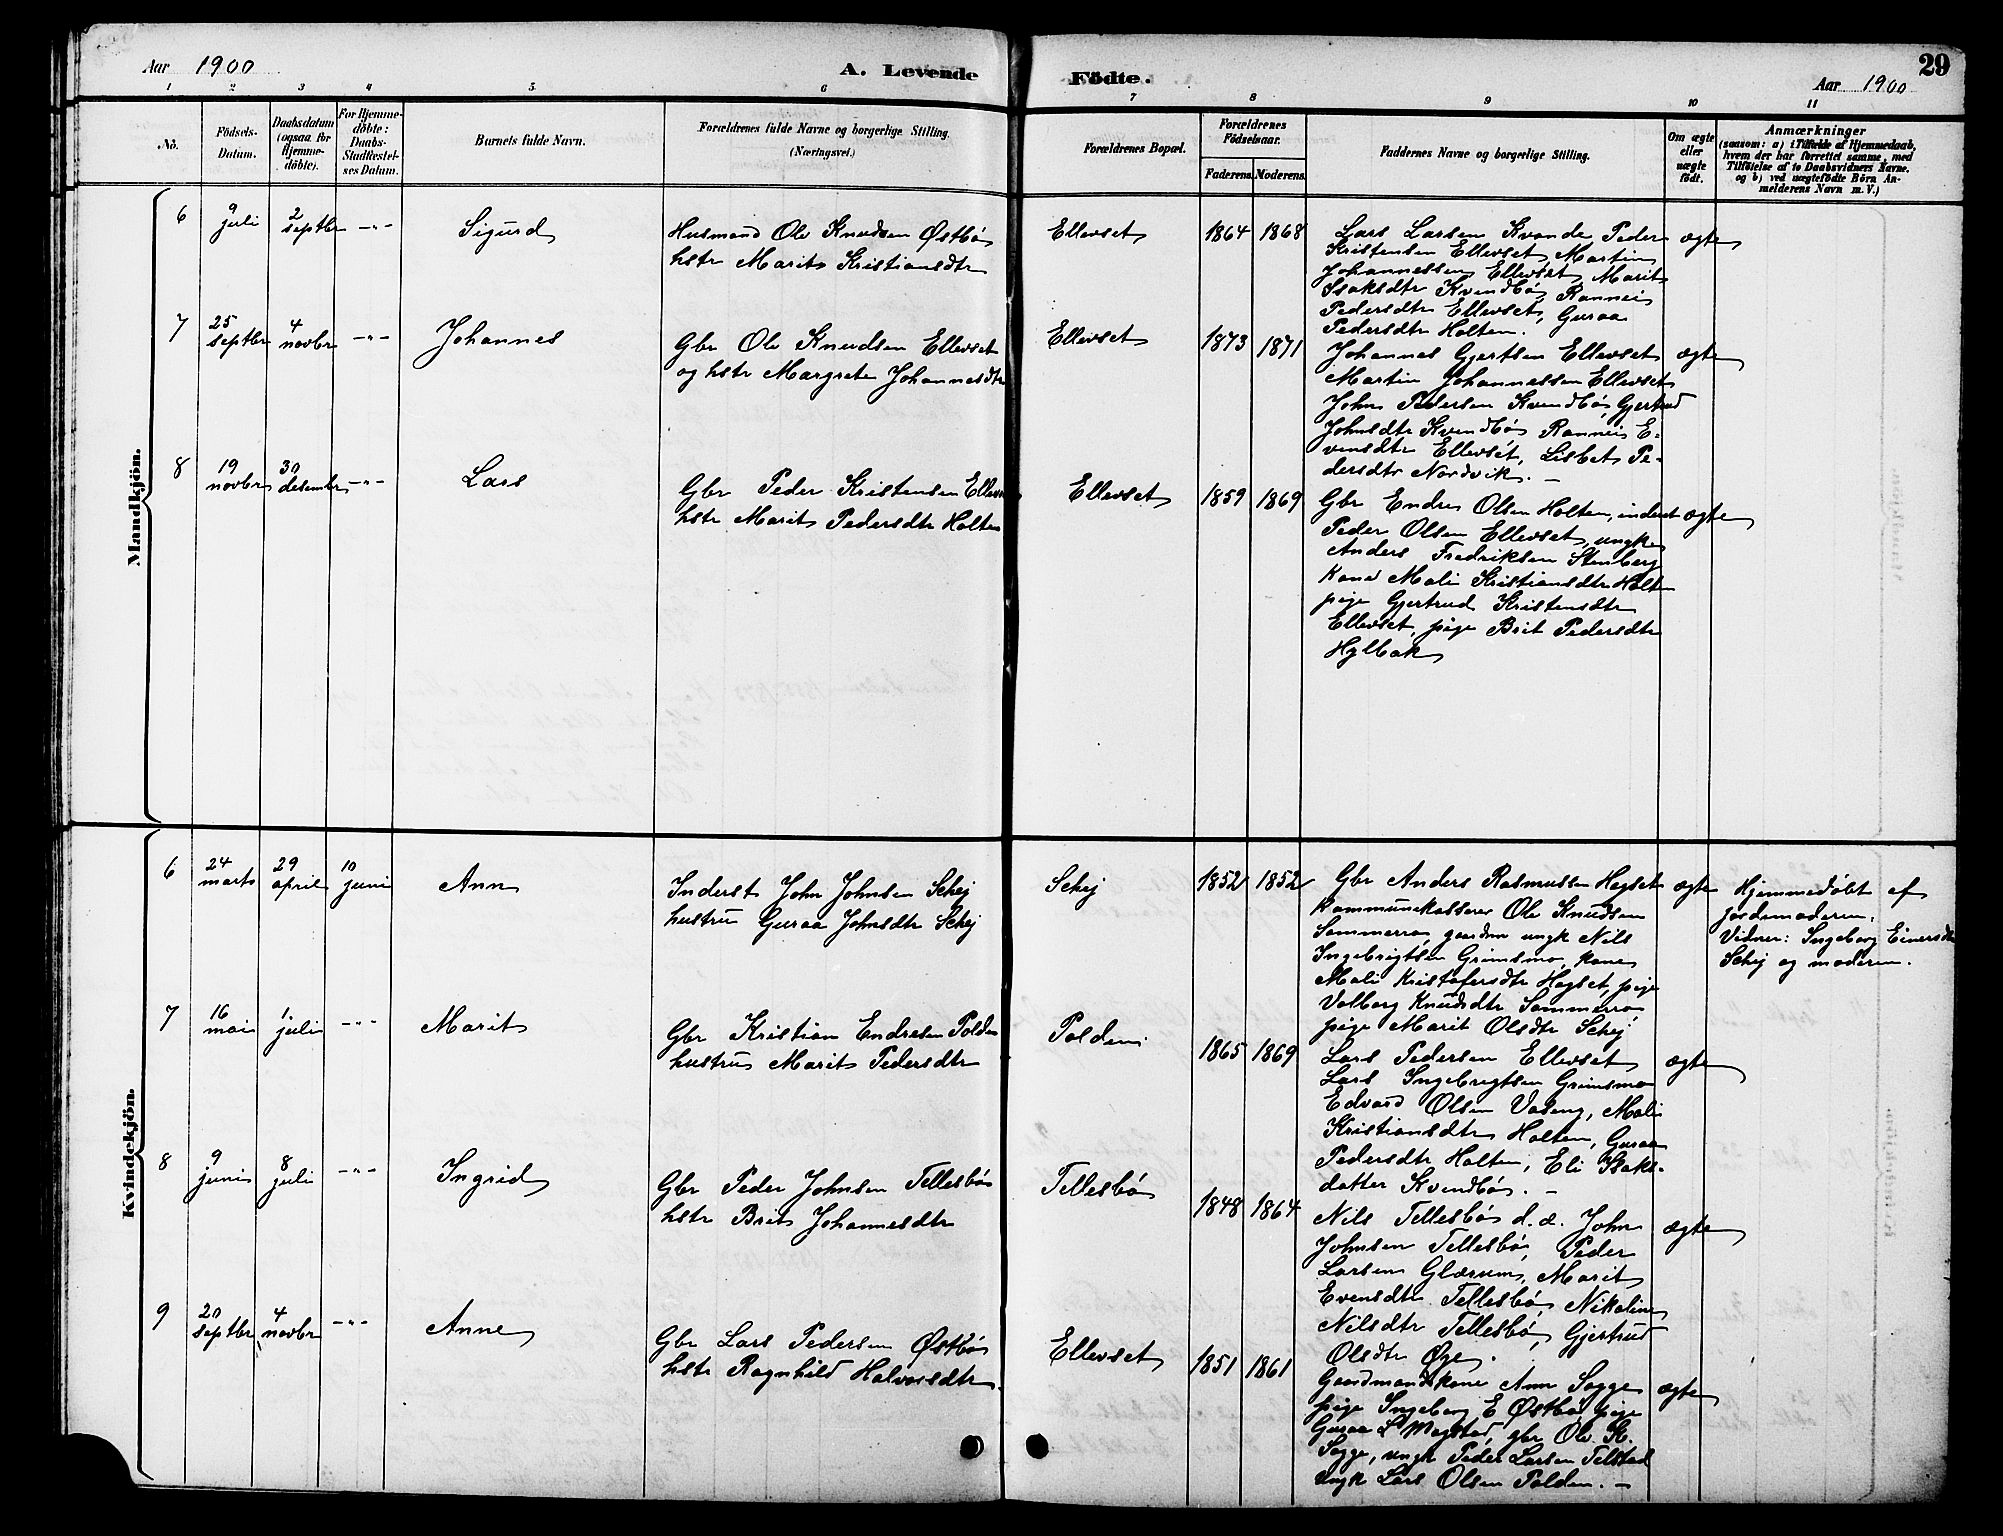 Aar 1900
A. Levende Födte.
Aar 1900
29
1 2 3 4 5 6 7 8 9 10 11
No.
Födsels-
Datum.
Daabsdatum
(ogsaa for
Hjemme-
döbte).
For Hjemme-
döbte:
Daabs-
Stadfæstel-
ses Datum.
Barnets fulde Navn.
Forældrenes fulde Navne og borgerlige Stilling.
(Næringsvei.)
Forældrenes Bopæl.
Forældrenes
Födselsaar.
Faderens. Moderens.
Faddernes Navne og borgerlige Stilling.
Om ægte
eller
uægte
födt.
Anmærkninger
(saasom: a) i Tilfælde af Hjemmedaab,
hvem der har forrettet samme, med
Tilföielse af to Daabsvidners Navne,
og b) ved uægtefödte Börn An-
melderens Navn m. V.)
Mandkjön.
6
9
juli
2
septbr
-"-
Sigurd
Husmand Ole Knudsen Østbø
hstr Marit Kristiansdtr
Ellevset
1864 1868
Lars Larsen Kvande Peder
Kristensen Ellevset, Martin
Johannessen Ellevset, Marit
Isaksdtr Kvendbø, Rannei
Pedersdtr Ellevset, Guraa
Pedersdtr Holten.
ægte
7
25
septbr
4
novbr
-"-
Johannes
Gbr Ole Knudsen Ellevset
og hstr Margrete Johannesdtr
Ellevset
1873 1871
Johannes Gjertsen Ellevset
Martin Johannessen Ellevset
John Pedersen Kvendbø, Gjertrud
Johnsdtr Kvendbø Rannei E-
vensdtr Ellevset, Lisbet Pe-
dersdtr Nordvik. -
ægte
8
19
novbr
30
desembr
-"-
Lars
Gbr Peder Kristensen Ellevs
hstr Marit Pedersdtr Holten
Ellevset
1859 1869
Gbr Endre Olsen Holten, inderst
Peder Olsen Ellevset, ungk
Anders Fredriksen Stenberg
Kone Mali Kristiansdtr Holten
pige Gjertrud Kristensdtr
Ellevset, pige Brit Pedersdtr
Hylbak
ægte
Kvindekjön.
6
24
marts
29
april
10
juni
Ann
Inderst John Johnsen Schej
hustru Guraa Johnsdtr Schej
Schej
1852 1852
Gbr Anders Rasmussen Hegset
Kommunekasserer Ole Knudsen
Sommerro, gaardm ungk Nils
Ingebrigtsen Grimsmo, kone
Mali Kristofersdtr Hegset, pige
Valborg Knudsdtr Sommerro
pige Marit Olsdtr Schej
ægte
Hjemmedøbt af
jordemoderen.
Vidner: Ingeborg Einersdtr
Schej og moderen.
7
16
mai
1.
juli
-"-
Marit
Gbr Kristian Endresen Polden
hustru Marit Pedersdtr
Polden
1865 1869
Lars Pedersen Ellevset
Lars Ingebrigtsen Grimsmo
Edvard Olsen Vaseng, Mali
Kristiansdtr Holten, Guraa
Pedersdtr Holten, Eli Isaks-
datter Kvendbø. -
ægte
8
9
juni
8
juli
-"-
Ingrid
Gbr Peder Johnsen Tellesbø
hstr Brit Johannesdtr
Tellesbø
1848 1864
Nils Tellesbø d.æ. John
Johnsen Tellesbø, Peder
Larsen Glærum, Marit
Evensdtr Tellesbø, Nikoline
Nilsdtr Tellesbø, Gjertrud
Olsdtr Øye.
ægte
9
20
septbr
4
novbr
-"-
Anne
Gbr Lars Pedersen Østbø
hstr Ragnhild Halvorsdtr
Ellevset
1851 1861
Gaardmandskone Ann Sogge
pige Ingeborg E Østbø, pige
Guraa L Magstad, gbr Ole K.
Sogge, ungk Peder Larsen Telstad
ungk Lars Olsen Polden. -
ægte